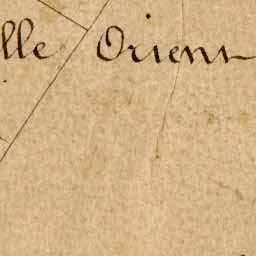 lle Orien